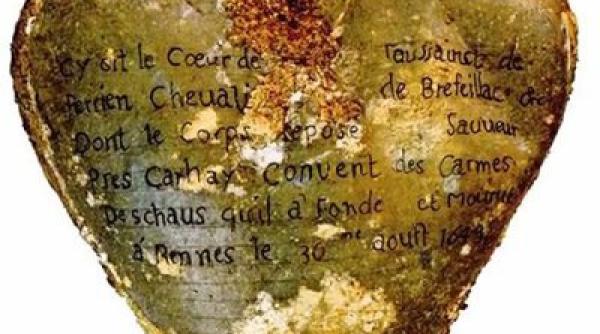 Cy git le Coeur de Toussainct de
Perrien Cheuali de Brefeillac &c
Dont le Corps repose Sauueur
Pres Carhay Convent des Carmes
Deschaus qu'il a Fonde et Mourut
á Rennes le 30me aoust 1649